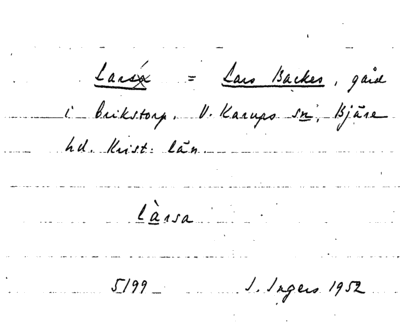 Larsa = Lars Backes, gård
i Erikstorp, V. Karups sn, Bjäre
hd. Krist. län
làrsa
5199 I. Ingers 1952